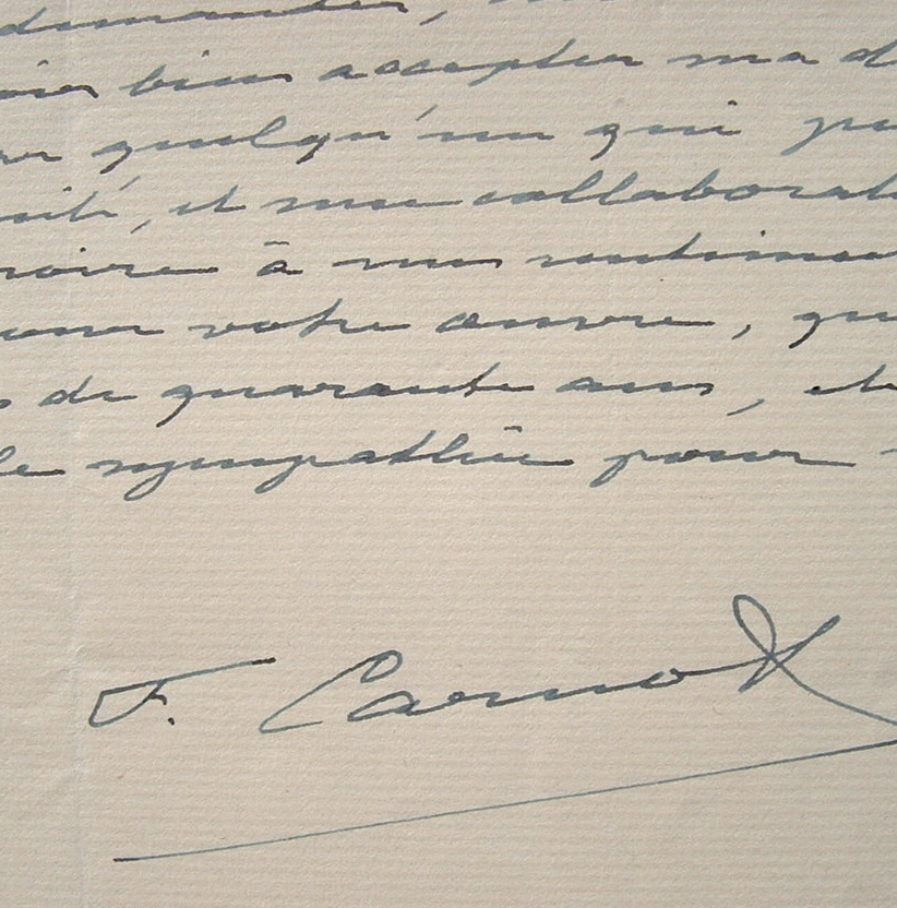 demander,
bien accepter ma d
quelqu'un qui pu
et ma collaborat
à mes sentiment
votre œuvre, qu
de quarante ans, et
le sympathie pour
F. Carnot